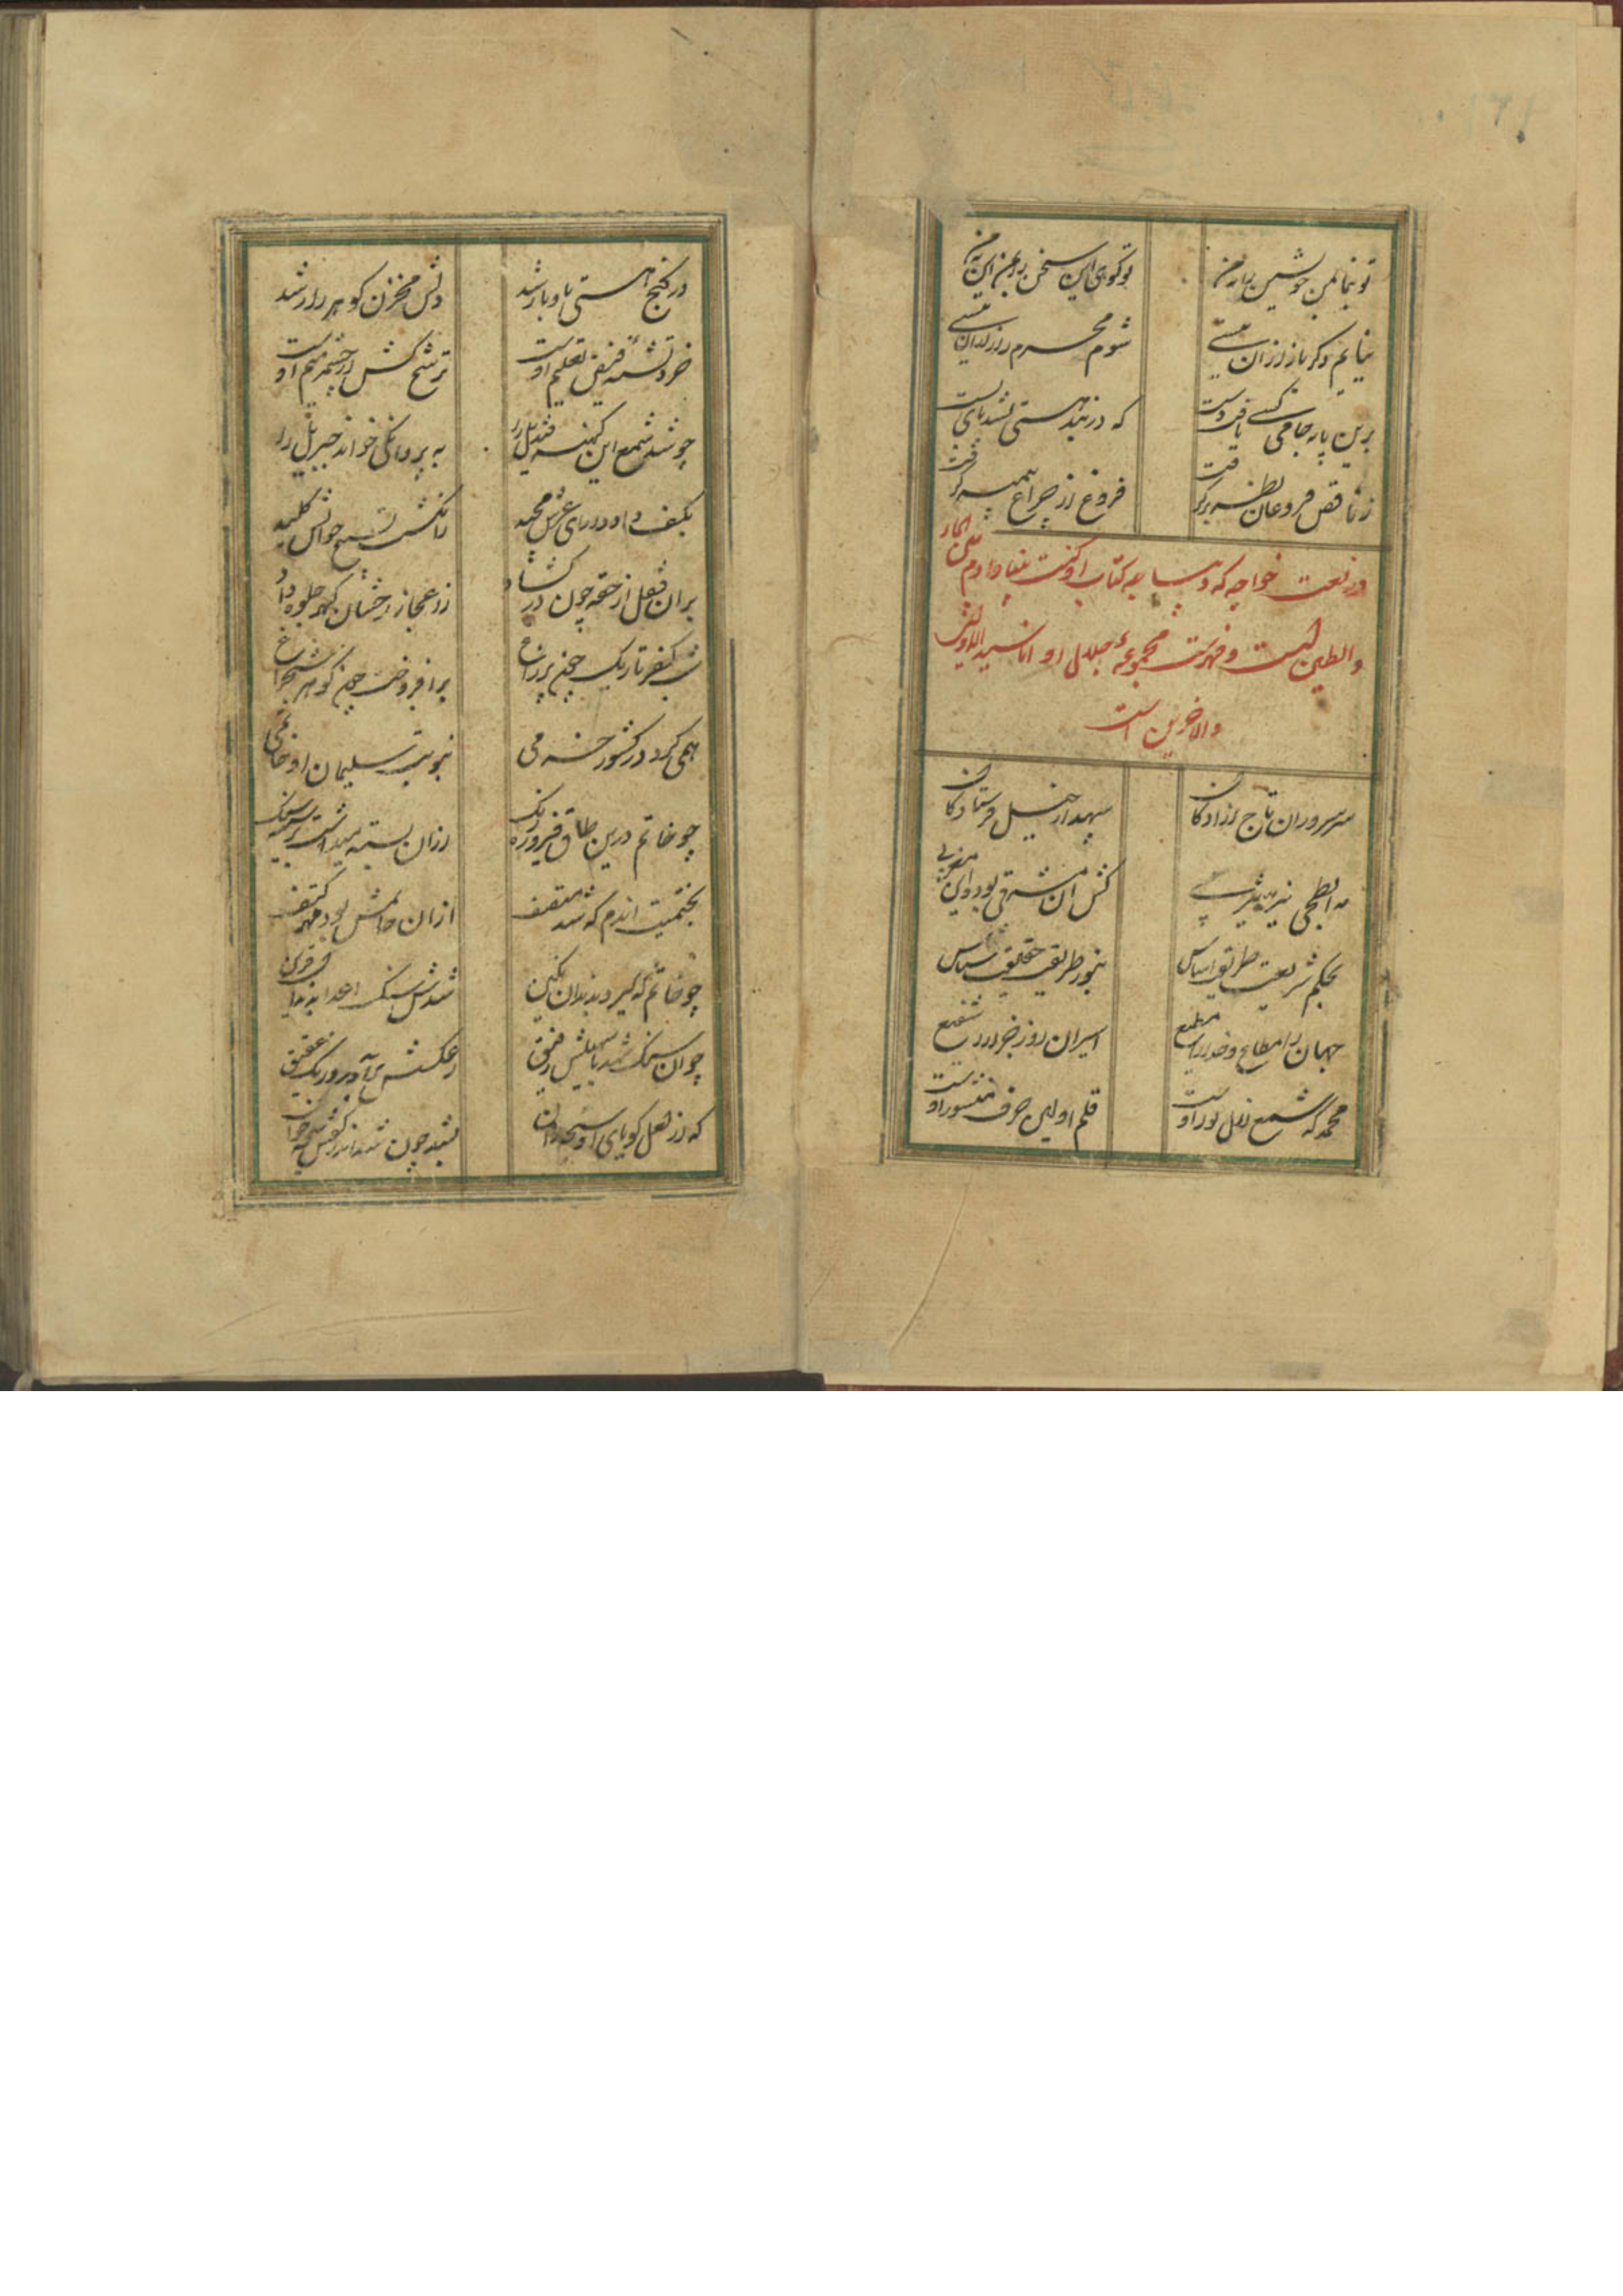 تو بنما بمن خویش
تو کوی این سخن
نیایم دکر باز ازان نیستی
شوم محرم راز ازان نیستی
برین پایه جامی کسی یافت دست
که در بند هستی نشد پای بست
ز ناقص فروغان نظر برگرفت
فروغ از چراغ پیمبر گرفت
در نعت خواجه که دیباچه کتاب او کنت نبیا و ادم بین الماء
والطین است و فهرست مجموعه جلال او انا سید الاولین
والاخرین است
سر سروران تاج ازادکان
سپهدار خیل فرستادکان
مه ابطحی نیر یثربی
کش ان مشرقی بود و این مغربی
بحکم شریعت طریق اساس
بنور طریقت حقایق شناس
جهان را مطاع و خدا را مطیع
اسیران روز جزا را شفیع
محمد که شمع ازل نور اوست
قلم اولین حرف منشور اوست
در کنج هستی باو باز شد
دلش مخزن کوهر راز شد
خرد تشنه فیض تعلیم اوست
ترشح کش از چشمه میم اوست
چو شد شمع این کهنه قندیل را
به پروانکی خواند جبریل را
بکف داد دارای عرش مجید
ز انکشت تسبیح خوانش کلید
بران قفل از حقه چون در کشاد
ز اعجاز رخشان کهر جلوه داد
شب کفر تاریک چون پر زاغ
برافروخت چون کوهر شبچراغ
همی کرد در کشور خرمی
نبوت سلیمان او خاتمی
چو خاتم درین طاق فیروزه رنک
ازان بسته میداشت بر سینه سنک
بختمیت اندم که شد متصف
ازان خاتمش بود مهر کتف
چو خاتم که کیرد بدندان نکین
شدش سنک اعدا بدندان قرین
چو ان سنک شد با سهیلش رفیق
ز عکسش برآورد رنک عقیق
که از لعل کویای او
نشد چون شد اندر کفش سبحه خوان